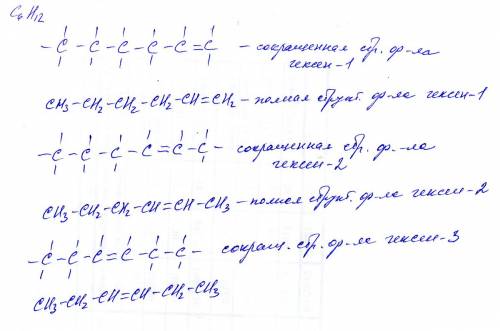 C₆H₁₂
-C-C-C-C-C=C - сокращенная стр. ф-ла
гексен-1
CH₃-CH₂-CH₂-CH₂-CH=CH₂ - полная структ. ф-ла гексен-1
-C-C-C-C=C-C- сокращенная стр. ф.-ла
гексен-2
CH₃-CH₂-CH₂-CH=CH-CH₃ - полная структ. ф-ла гексен-2
-C-C-C=C-C-C- сокращ. стр. ф-ла гексен-3
CH₃-CH₂-CH=CH-CH₂-CH₃